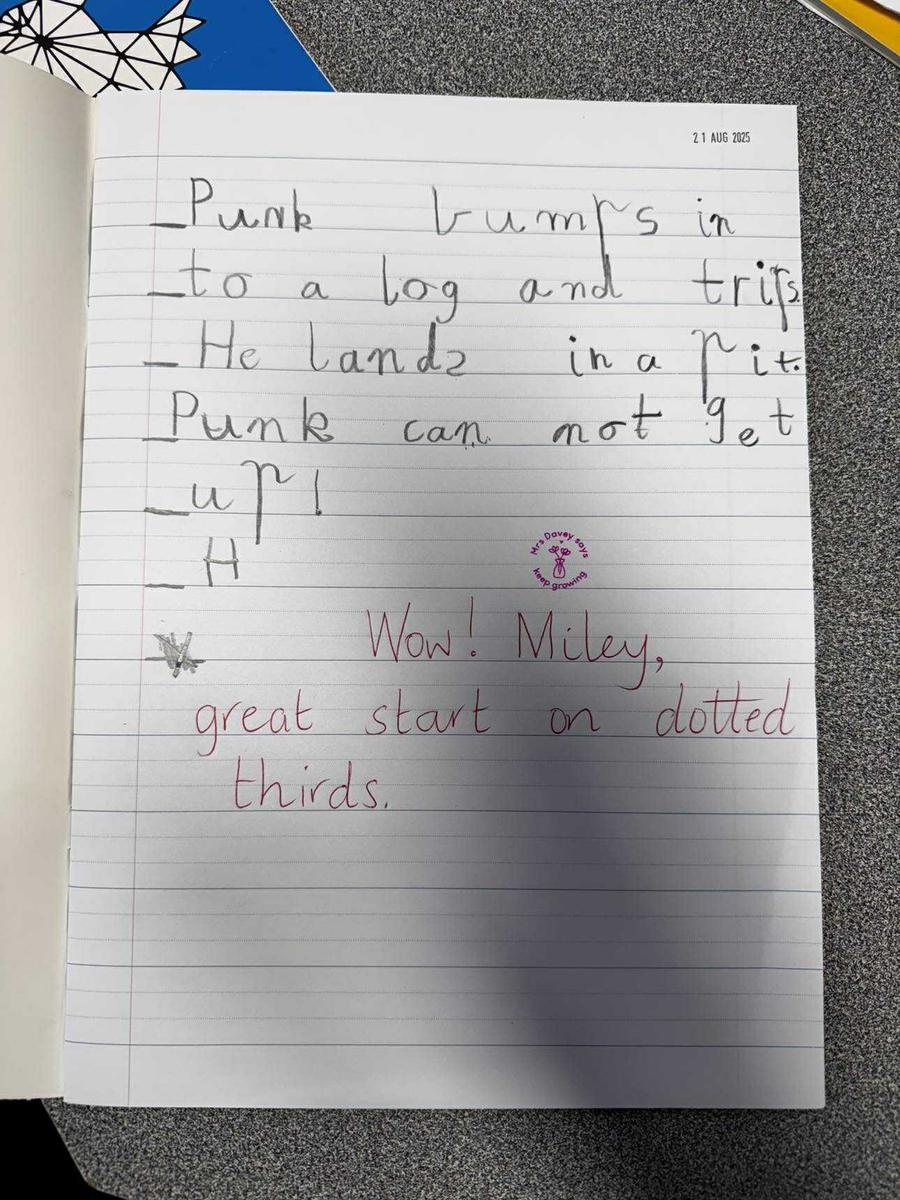 21 AUG 2025
Punk bumps in
to a log and trips.
He lands in a pit.
Punk can not get
up!
H
Mrs Davey says
keep growing
Wow! Miley,
great start on dotted
thirds.